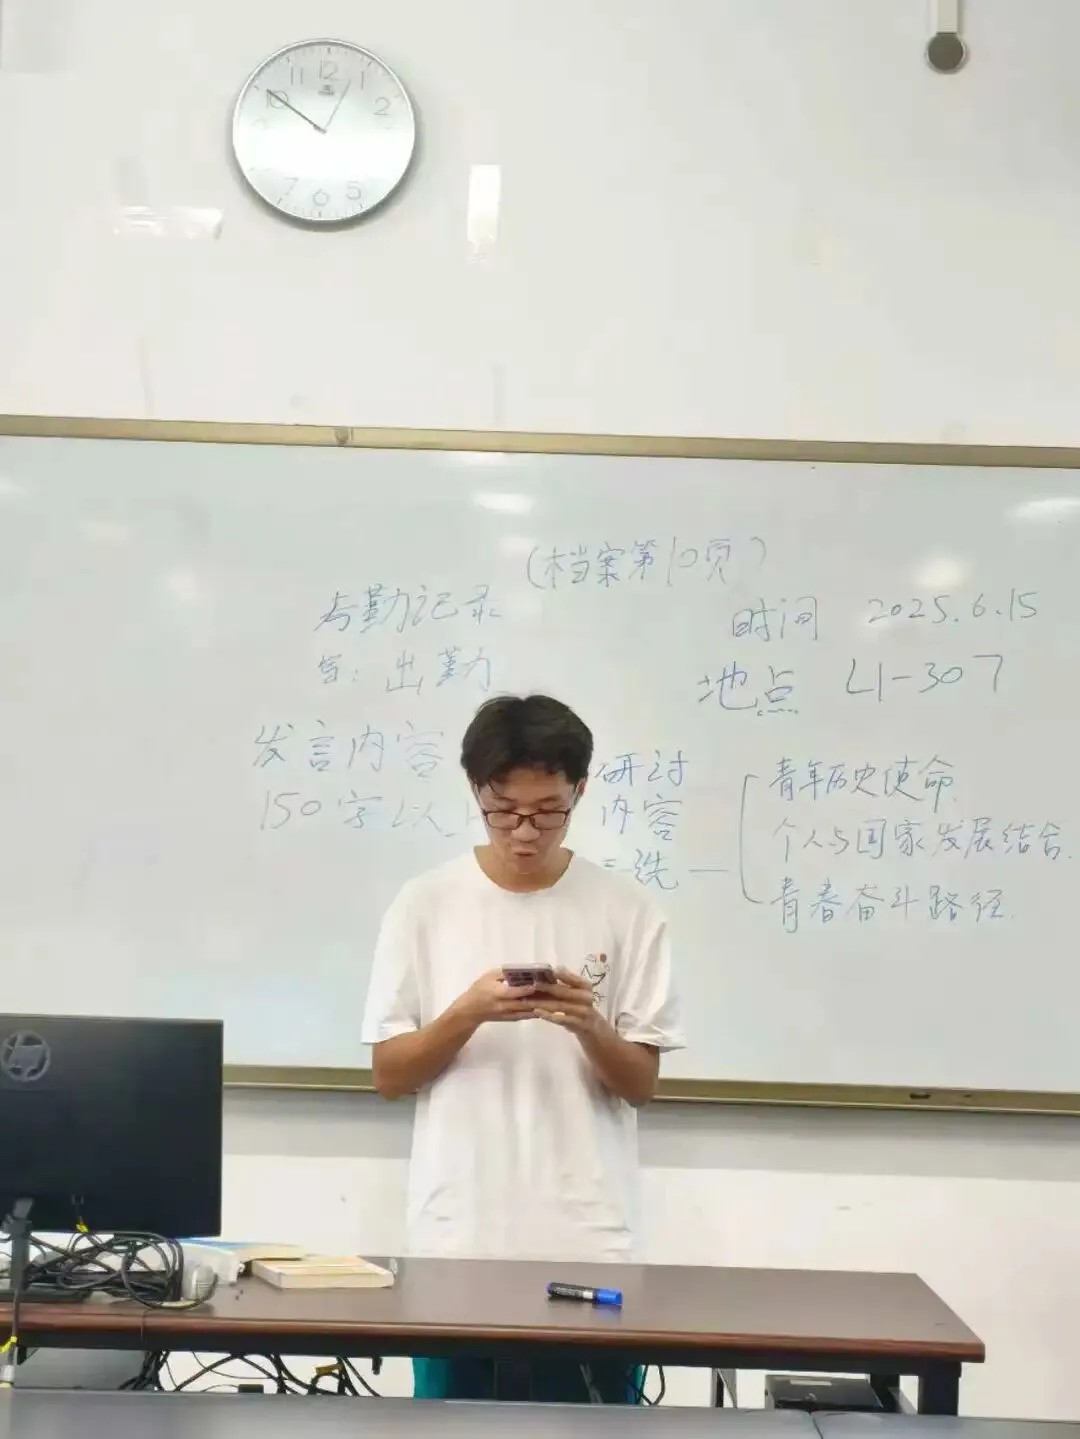 12
11
1
10
2
7
6
5
(档案第10页)
与勤记录
写：出勤
发言内容
150字以上
时间 2025.6.15
地点 L1-307
研讨
内容
三选一
青年历史使命
个人与国家发展结合.
青春奋斗路径.
hp